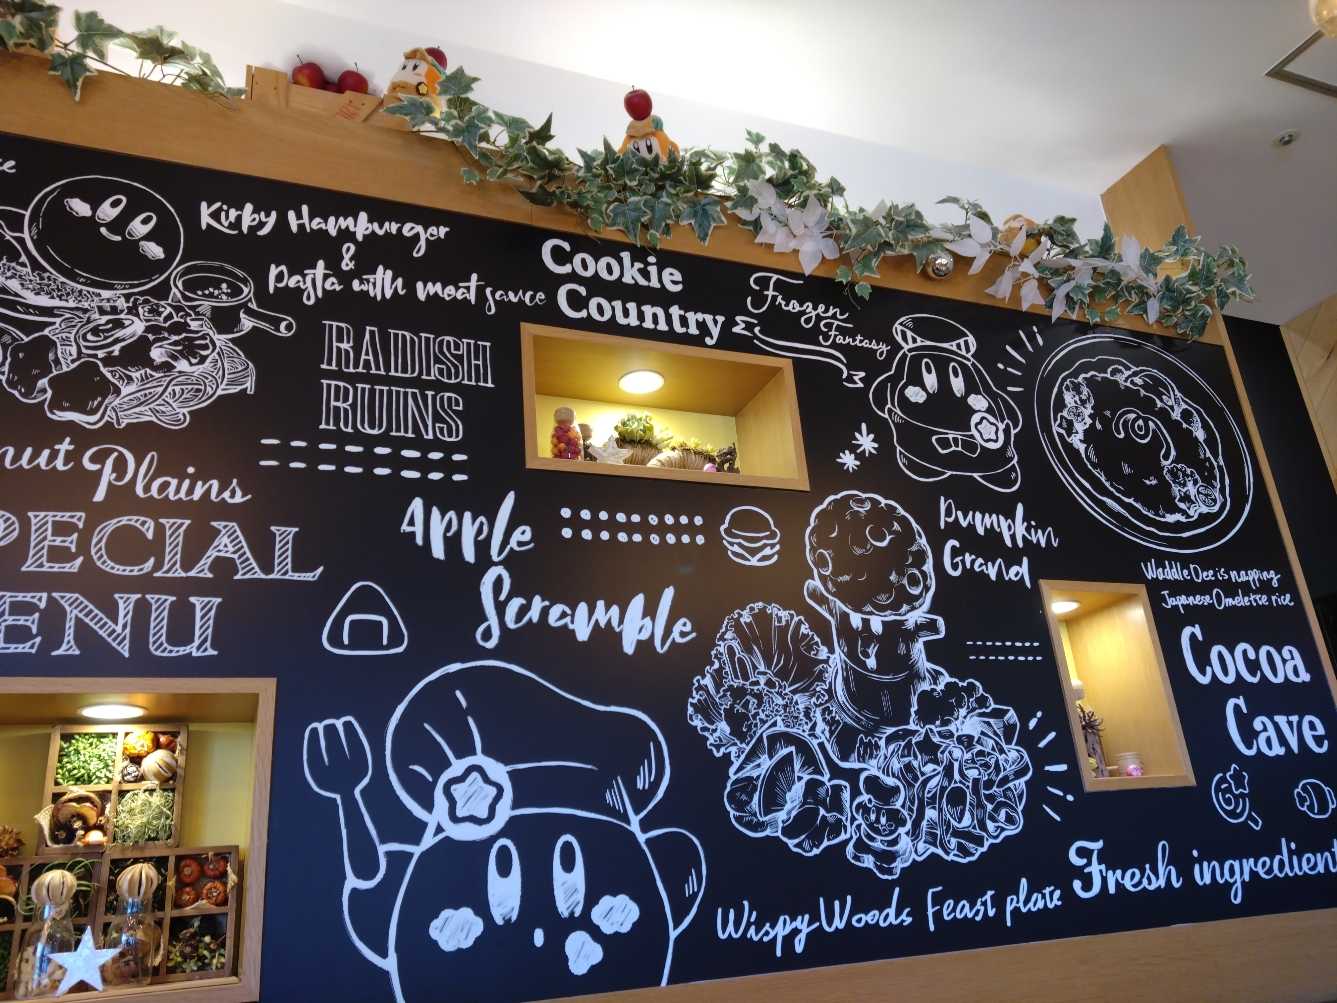 Kirby Hamburger
&
Pasta with meat sauce
Cookie
Country
Frozen
Fantasy
RADISH
RUINS
Plains
Apple
Scramble
Pumpkin
Grand
Waddle Dee is napping
Japanese Omelette rice
Cocoa
Cave
Wispy Woods Feast plate
Fresh